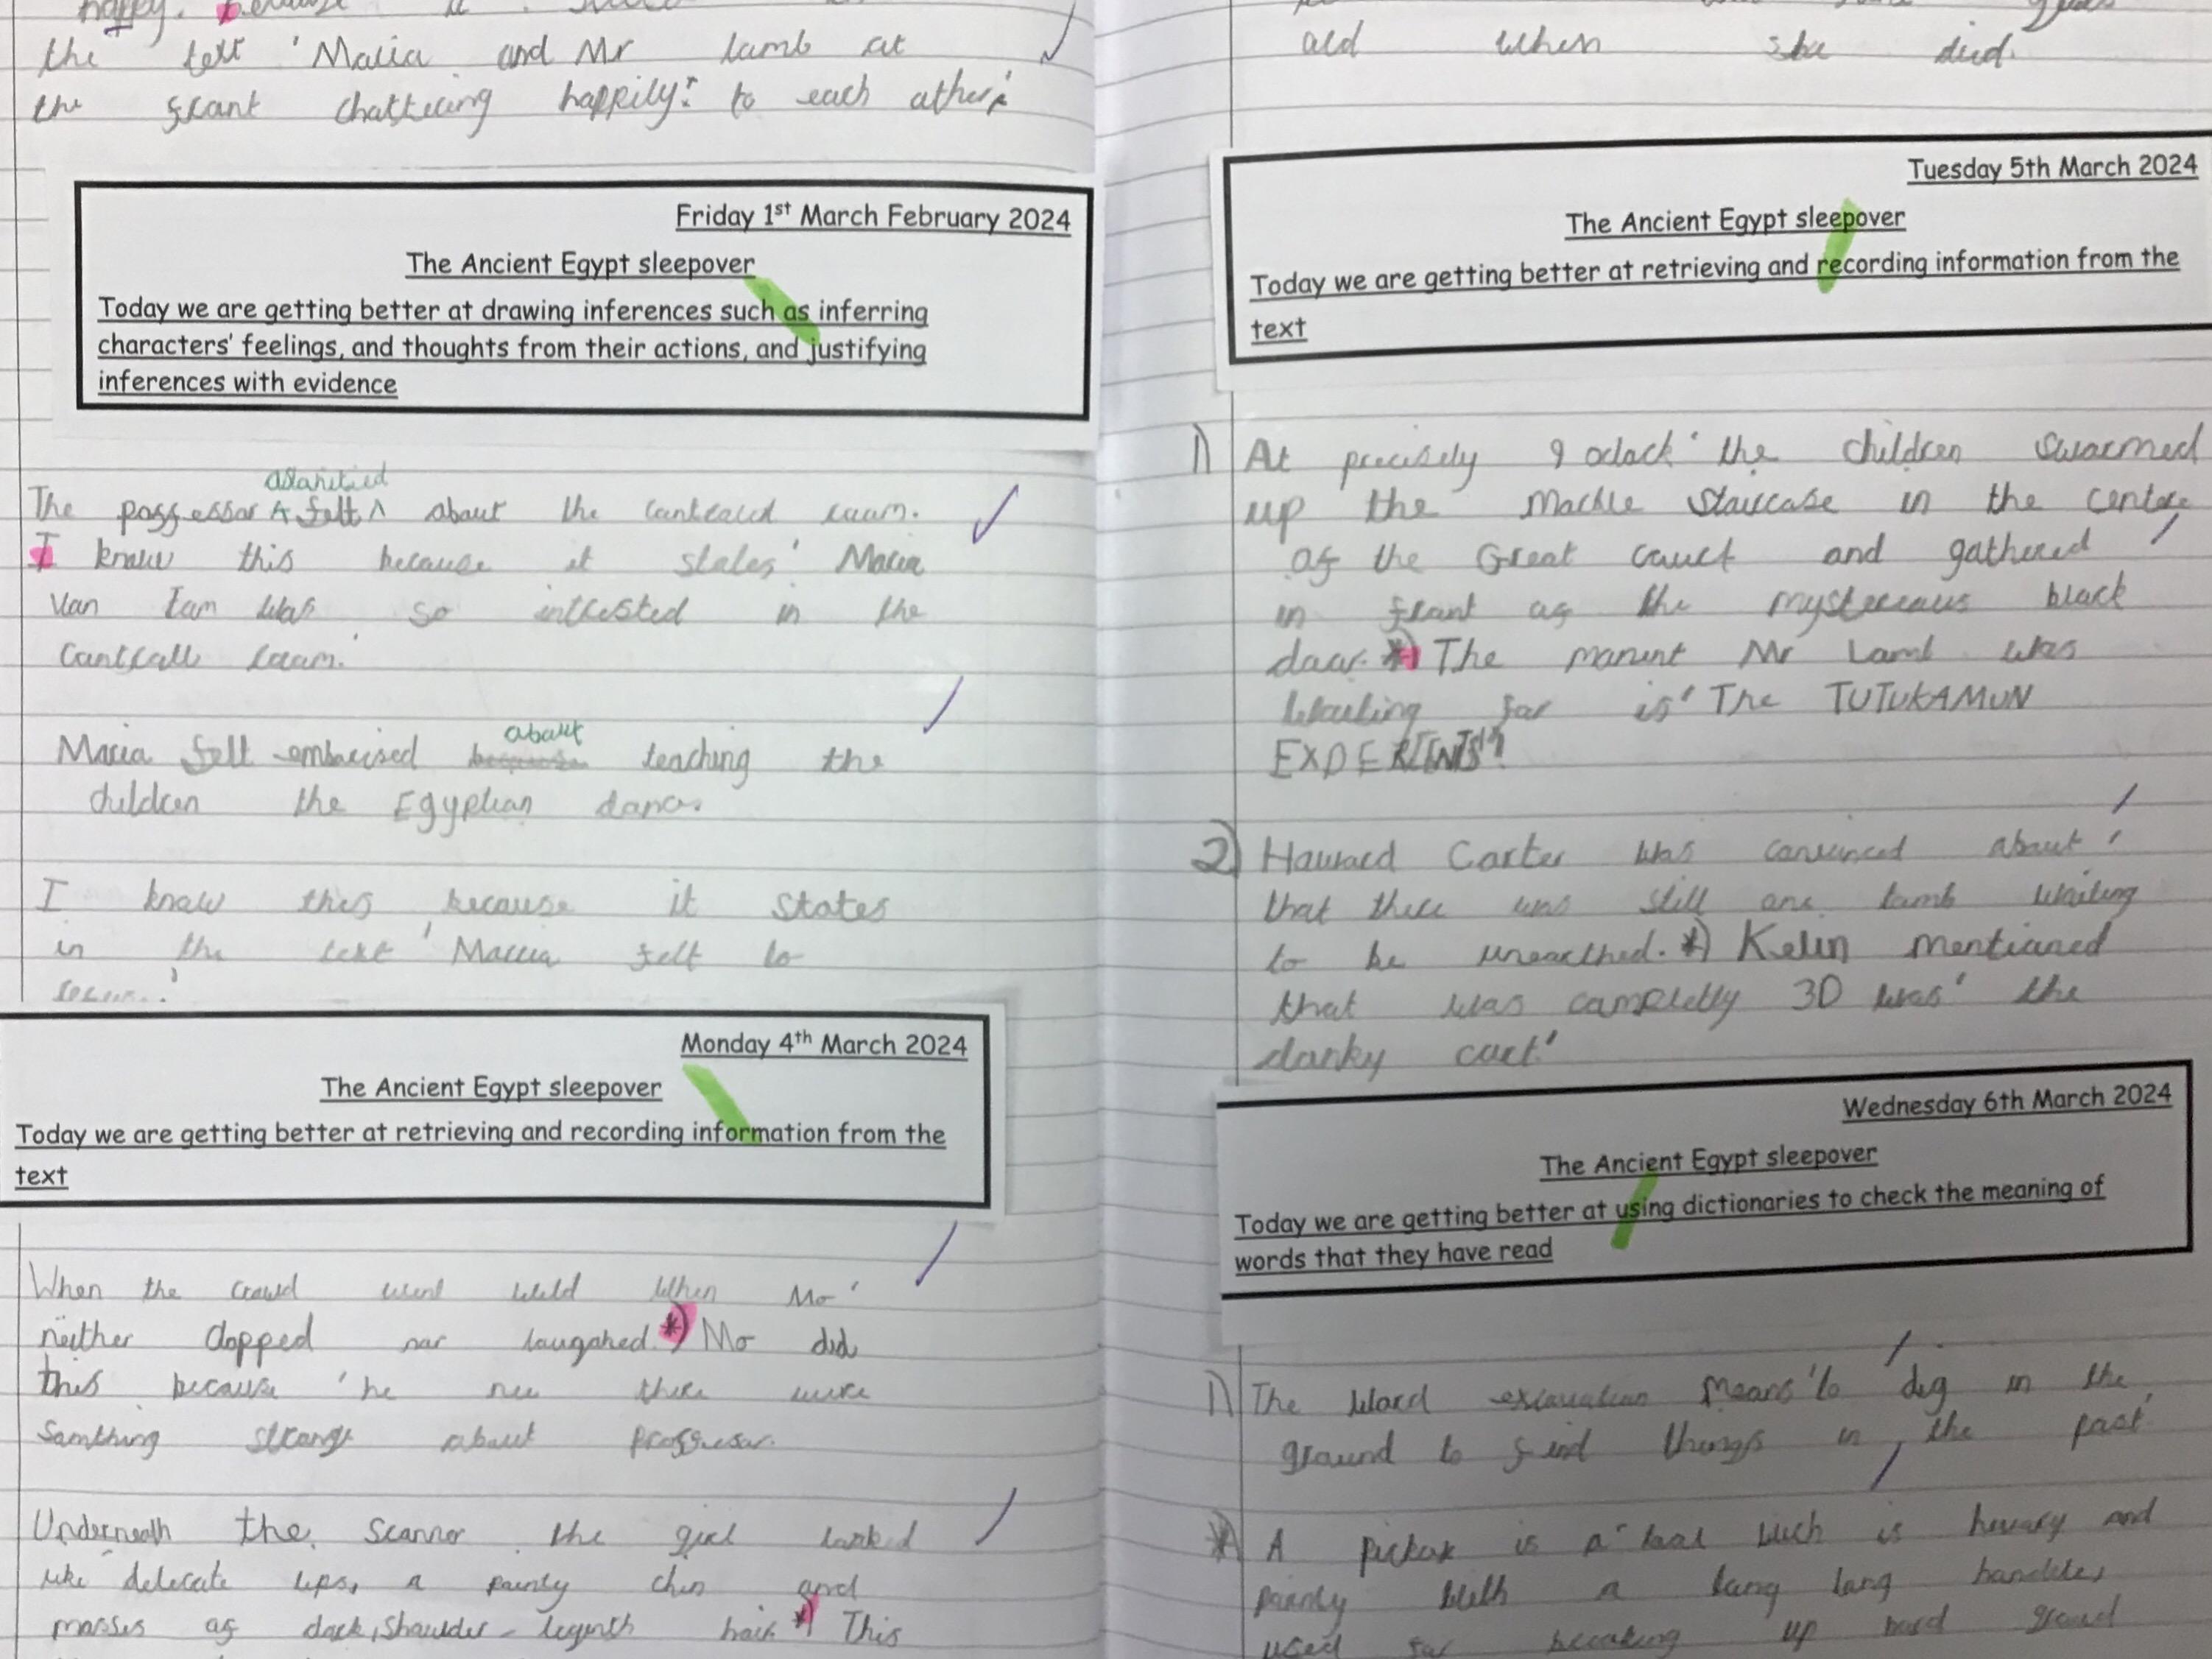 happy. because it
the text 'Maria and Mr lamb at
the front chattering happily: to each other'.
Friday 1st March February 2024
The Ancient Egypt sleepover
Today we are getting better at drawing inferences such as inferring
characters' feelings, and thoughts from their actions, and justifying
inferences with evidence
The possessor felt about the room.
I know this because it states' Maria
Van Tam was so intrested in the
room.'
about
Maria felt embarised teaching the
children the Egyptian dance.
I know this because it states
in the text 'Maria felt to
Monday 4th March 2024
The Ancient Egypt sleepover
Today we are getting better at retrieving and recording information from the
text
When the crowd went wild when Mo'
neither clapped nor laugahed. *) Mo did
this because 'he nee there were
Samthing strange about proffessor.
Underneath the scannor the girl looked
like delecate lips, a pointy chin and
masses of dark, shoulder-legnth hair *) This
old when she died.
Tuesday 5th March 2024
The Ancient Egypt sleepover
Today we are getting better at retrieving and recording information from the
text
1) At precisely 9 oclock 'the children swarmed
up the Marble Staircase in the centre
of the Great Court and gathered
in front of the mysterious black
door. *) The Mr Lamb was
waiting for is' The TUTUKAMUN
2) Howard Carter was convinced about '
that there was still one tomb waiting
to be unearthed. *) Kelin mentioned
that was completly 3D was' the
donky cart'
Wednesday 6th March 2024
The Ancient Egypt sleepover
Today we are getting better at using dictionaries to check the meaning of
words that they have read
1) The word excavation means 'to dig in the
ground to find things in the past'
*) A pickax is a 'tool wich is heavy and
pointy with a long long handle,
used for breaking up hard ground